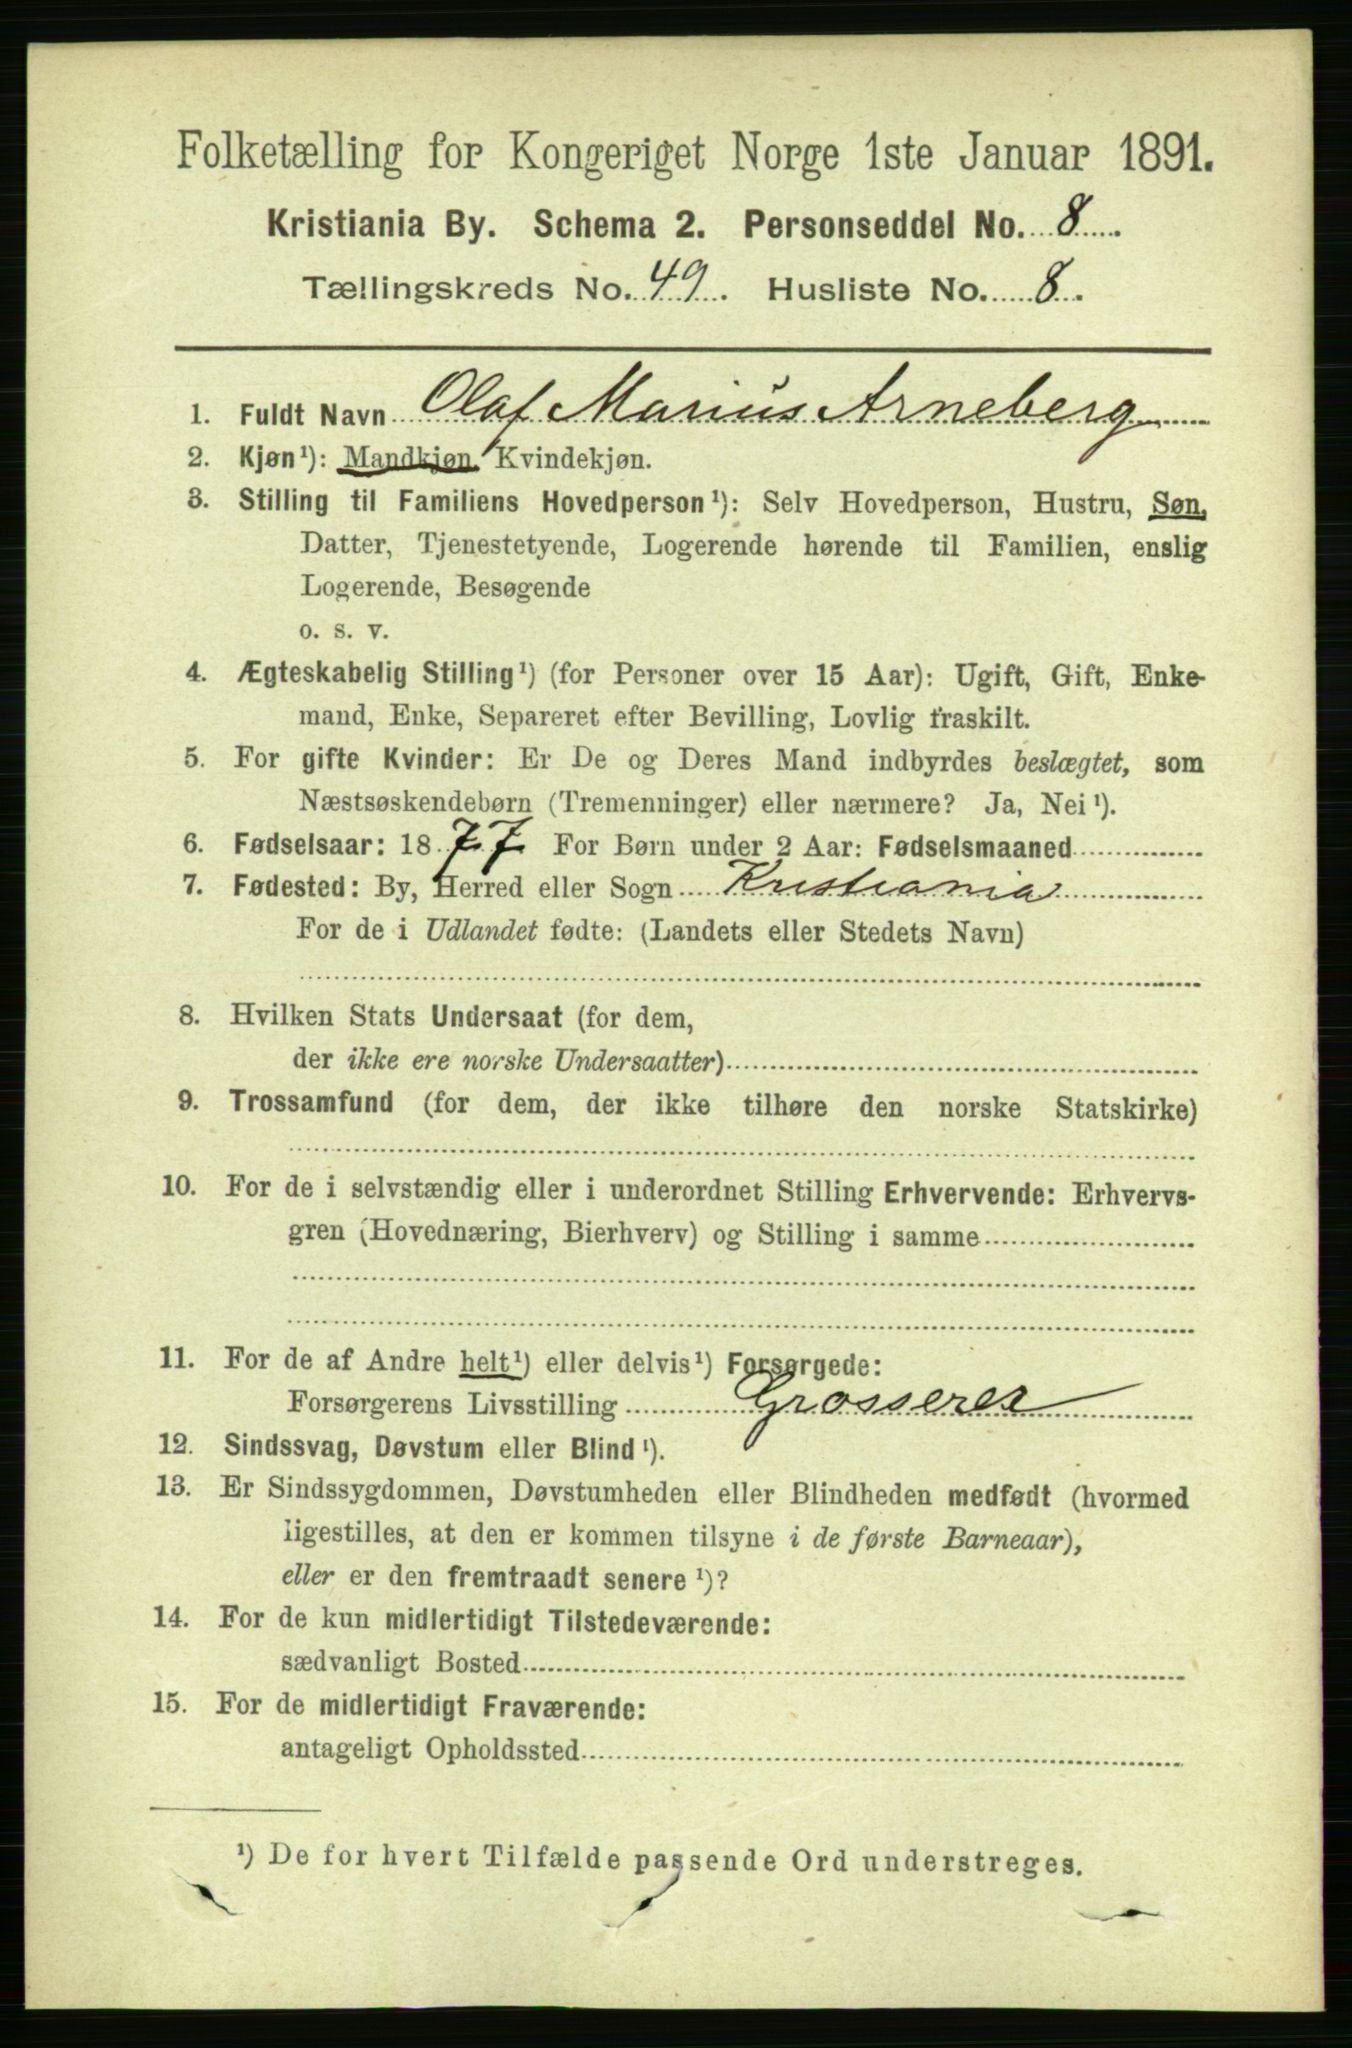 Folketælling for Kongeriget Norge 1ste Januar 1891.
Kristiania By. Schema 2. Personseddel No. 8.
Tællingskreds No. 49. Husliste No. 8.
1. Fuldt Navn Olaf Marius Arneberg
2. Kjøn¹): Mandkjøn, Kvindekjøn.
3. Stilling til Familiens Hovedperson¹): Selv Hovedperson, Hustru, Søn,
Datter, Tjenestetyende, Logerende hørende til Familien, enslig
Logerende, Besøgende
o. s. v.
4. Ægteskabelig Stilling¹) (for Personer over 15 Aar): Ugift, Gift, Enke-
mand, Enke, Separeret efter Bevilling, Lovlig fraskilt.
5. For gifte Kvinder: Er De og Deres Mand indbyrdes beslægtet, som
Næstsøskendebørn (Tremenninger) eller nærmere? Ja, Nei¹).
6. Fødselsaar: 1877 For Børn under 2 Aar: Fødselsmaaned
7. Fødested: By, Herred eller Sogn Kristiania
For de i Udlandet fødte: (Landets eller Stedets Navn)
8. Hvilken Stats Undersaat (for dem,
der ikke ere norske Undersaatter)
9. Trossamfund (for dem, der ikke tilhøre den norske Statskirke)
10. For de i selvstændig eller i underordnet Stilling Erhvervende: Erhvervs-
gren (Hovednæring, Bierhverv) og Stilling i samme
11. For de af Andre helt¹) eller delvis¹) Forsørgede:
Forsørgerens Livsstilling Grosserer
12. Sindssvag, Døvstum eller Blind¹).
13. Er Sindssygdommen, Døvstumheden eller Blindheden medfødt (hvormed
ligestilles, at den er kommen tilsyne i de første Barneaar),
eller er den fremtraadt senere¹)?
14. For de kun midlertidigt Tilstedeværende:
sædvanligt Bosted
15. For de midlertidigt Fraværende:
antageligt Opholdssted
¹) De for hvert Tilfælde passende Ord understreges.